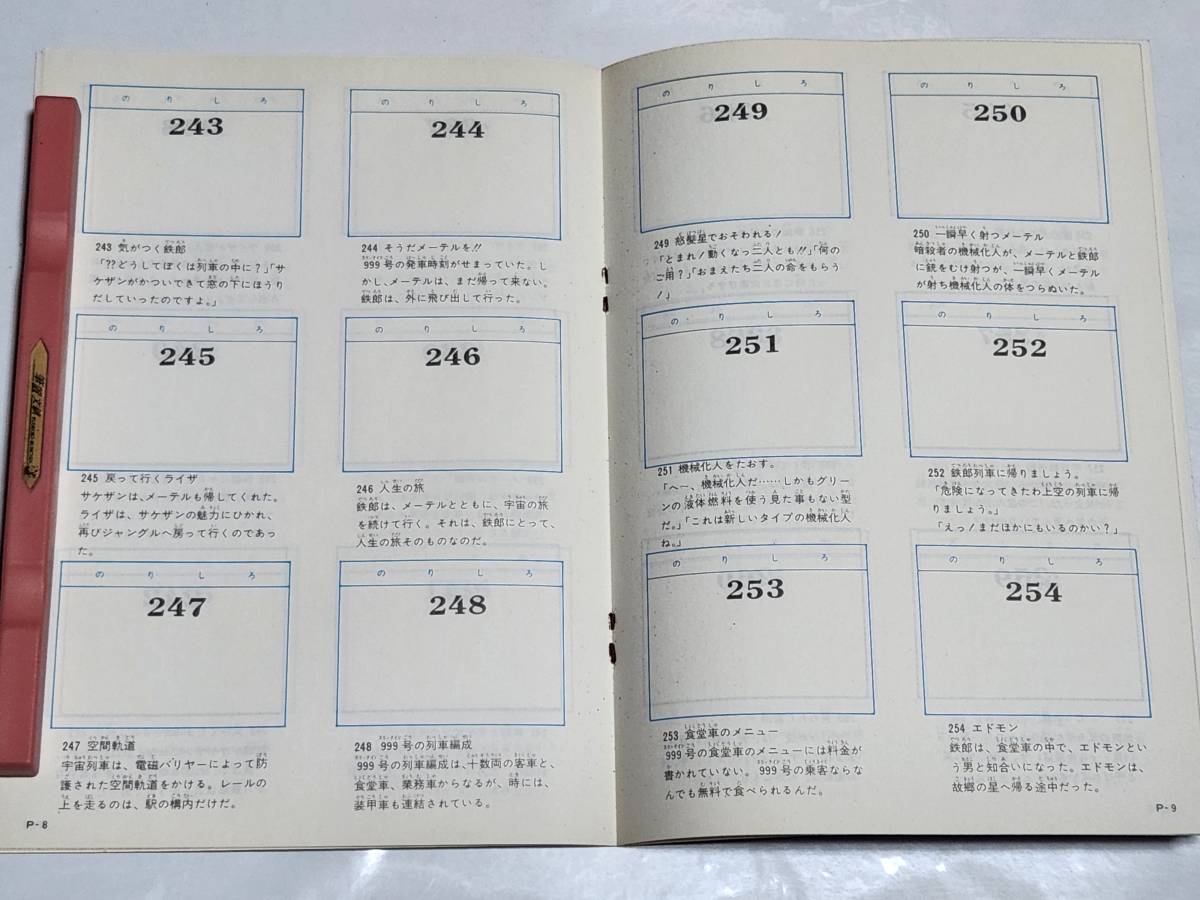 のりしろ
243
243 気がつく鉄郎
「??どうしてぼくは列車の中に?」「サ
ケザンがかついできて窓の下にほうり
だしていったのですよ。」
のりしろ
244
244 そうだメーテルを!!
999号の発車時刻がせまっていた。し
かし、メーテルは、まだ帰って来ない。
鉄郎は、外に飛び出して行った。
のりしろ
245
245 戻って行くライザ
サケザンは、メーテルも帰してくれた。
ライザは、サケザンの魅力にひかれ、
再びジャングルへ戻って行くのであっ
た。
のりしろ
246
246 人生の旅
鉄郎は、メーテルとともに、宇宙の旅
を続けて行く。それは、鉄郎にとって、
人生の旅そのものなのだ。
のりしろ
247
247 空間軌道
宇宙列車は、電磁バリヤーによって防
護された空間軌道をかける。レールの
上を走るのは、駅の構内だけだ。
のりしろ
248
248 999号の列車編成
999号の列車編成は、十数両の客車と、
食堂車、業務車からなるが、時には、
装甲車も連結されている。
P-8
のりしろ
249
249 怒髪星でおそわれる!
「とまれ!動くなっ二人とも!!」「何の
ご用?」「おまえたち二人の命をもらう
!」
のりしろ
250
250 一瞬早く射つメーテル
暗殺者の機械化人が、メーテルと鉄郎
に銃をむけ射つが、一瞬早くメーテル
が射ち機械化人の体をつらぬいた。
のりしろ
251
251 機械化人をたおす。
「へー、機械化人だ……しかもグリー
ンの液体燃料を使う見た事もない型
だ。」「これは新しいタイプの機械化人
ね。」
のりしろ
252
252 鉄郎列車に帰りましょう。
「危険になってきたわ上空の列車に帰
りましょう。」
「えっ!まだほかにもいるのかい?」
のりしろ
253
253 食堂車のメニュー
999号の食堂車のメニューには料金が
書かれていない。999号の乗客ならな
んでも無料で食べられるんだ。
のりしろ
254
254 エドモン
鉄郎は、食堂車の中で、エドモンとい
う男と知合いになった。エドモンは、
故郷の星へ帰る途中だった。
P-9